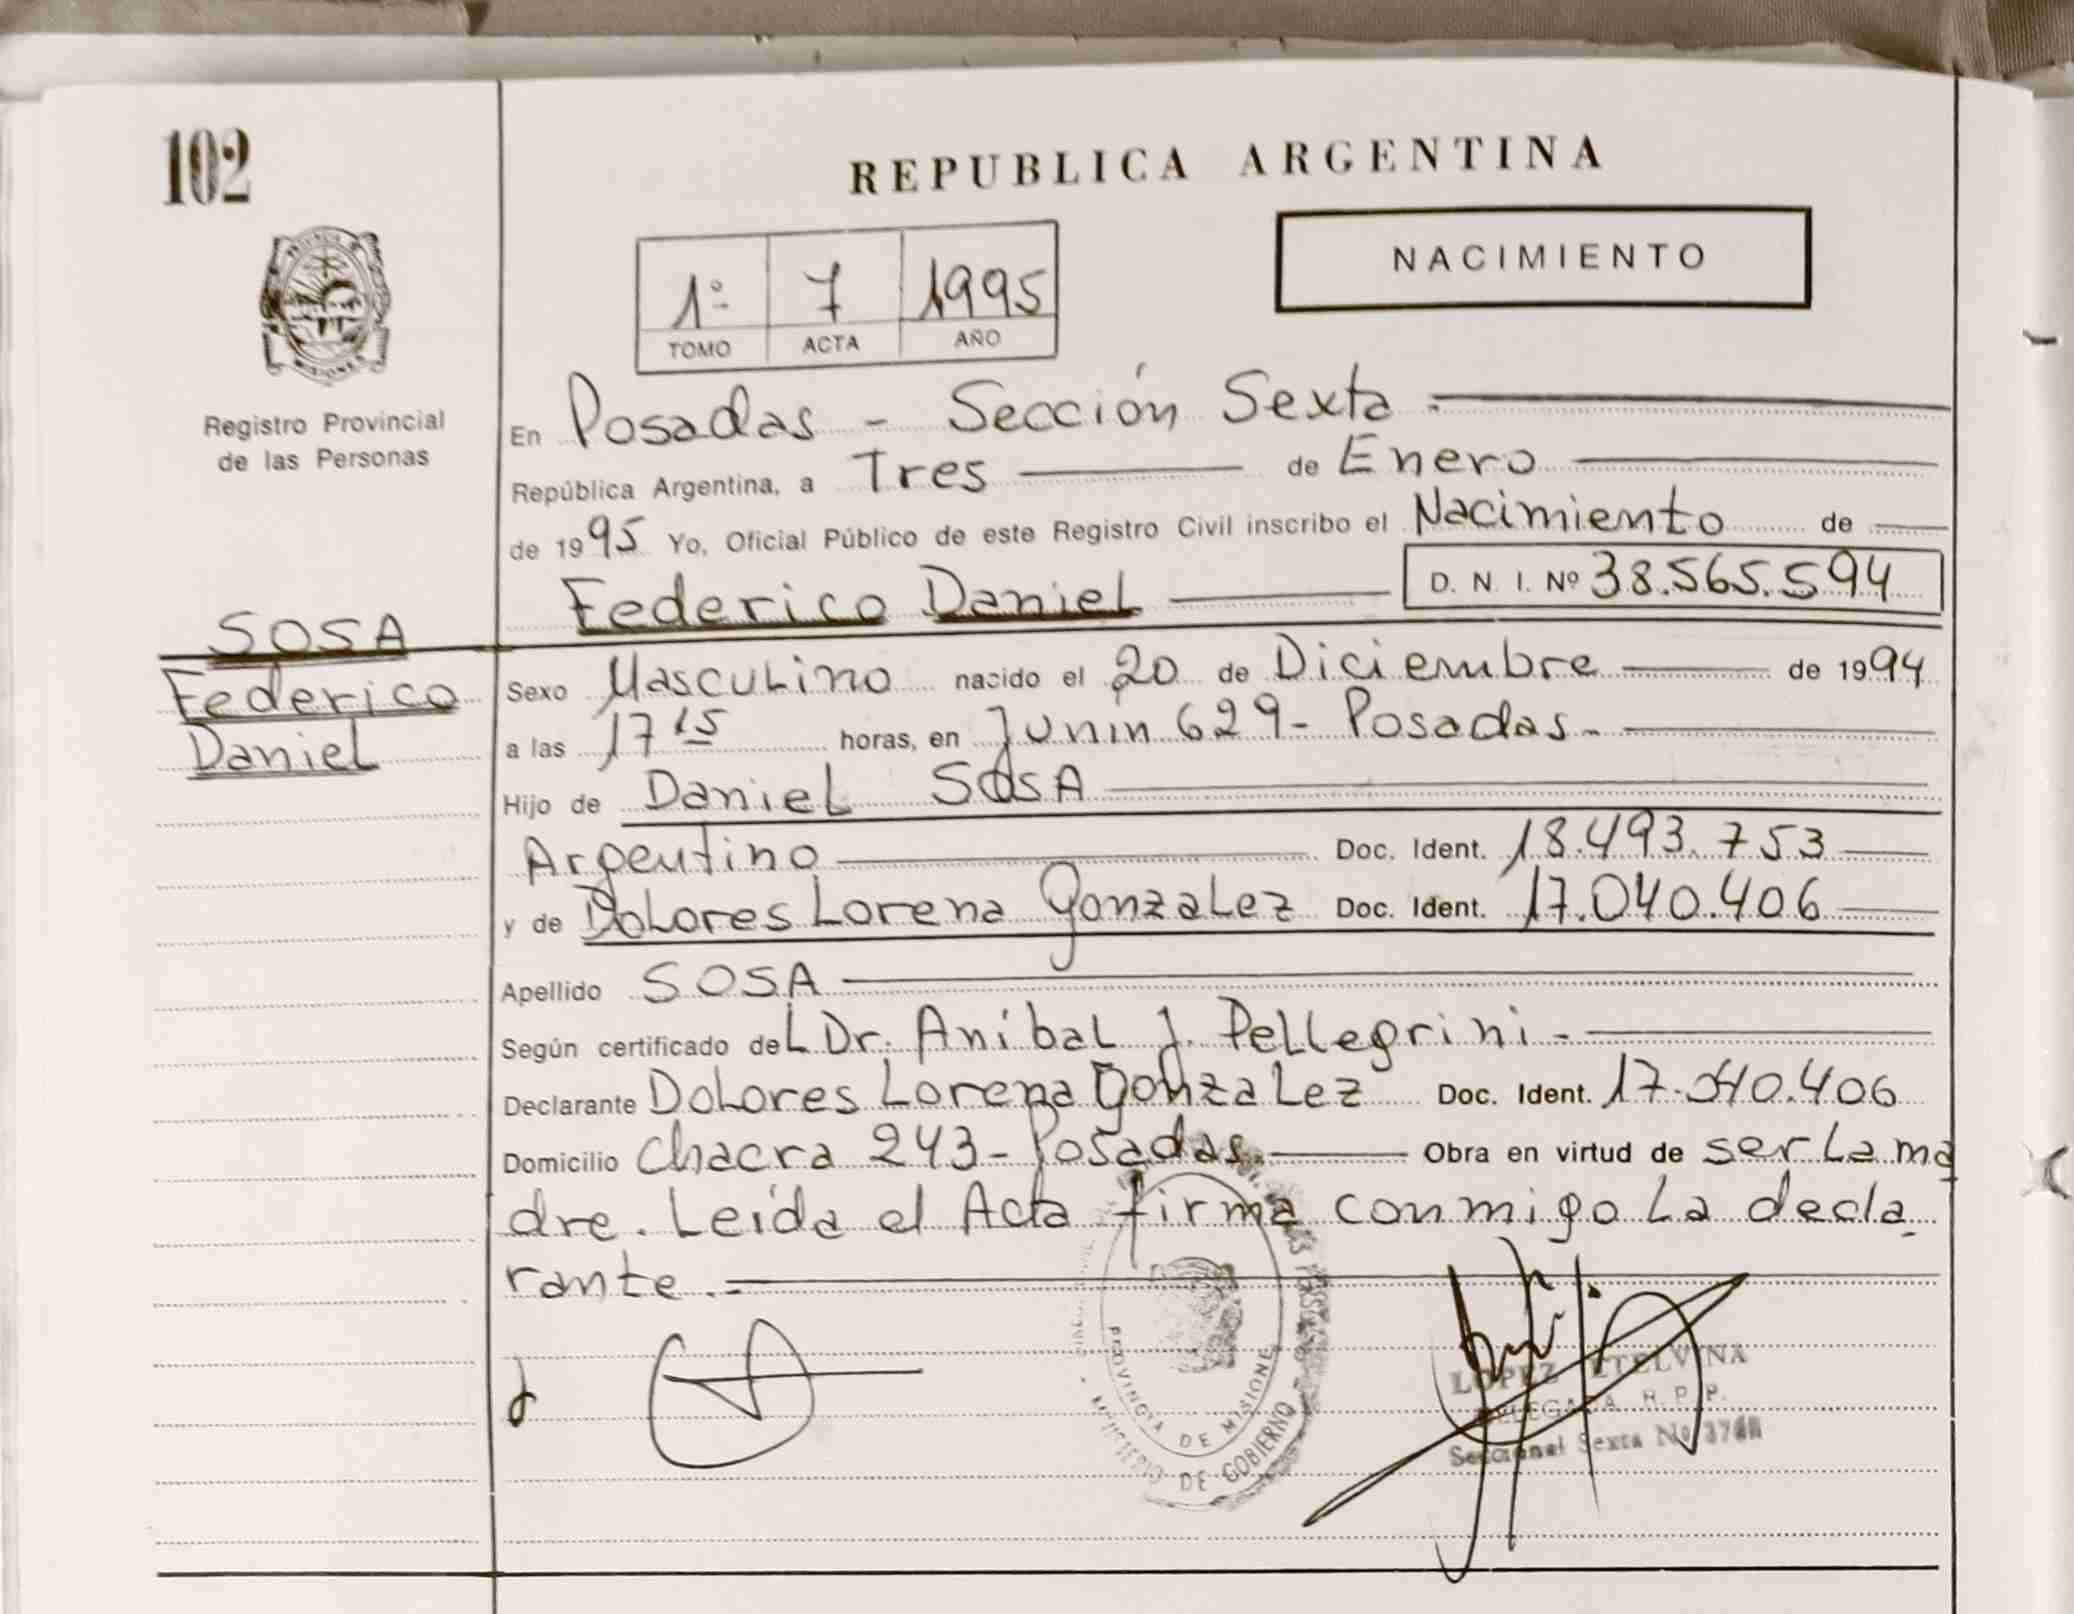 102
REPUBLICA ARGENTINA
NACIMIENTO
1º 7 1995
TOMO ACTA AÑO
PROVINCIA DE MISIONES
Registro Provincial
de las Personas
En Posadas - Sección Sexta -
República Argentina, a Tres de Enero
de 1995 Yo, Oficial Público de este Registro Civil inscribo el Nacimiento de
Federico Daniel D. N. I. Nº 38.565.594
SOSA
Federico
Daniel
Sexo Masculino nacido el 20 de Diciembre de 1994
a las 17 15 horas, en Junin 629- Posadas-
Hijo de Daniel SOSA
Argentino Doc. Ident. 18.493.753
y de Dolores Lorena Gonzalez Doc. Ident. 17.040.406
Apellido SOSA
Según certificado del Dr. Aníbal J. Pellegrini-
Declarante Dolores Lorena Gonzalez Doc. Ident. 17.040.406
Domicilio Chacra 243- Posadas. Obra en virtud de ser la ma
dre. Leída el Acta firma conmigo la decla
rante.-
PROVINCIA DE MISIONES
MINISTERIO DE GOBIERNO
LOPEZ ETELVINA
DELEGADA R. P. P.
Seccional Sexta Nº